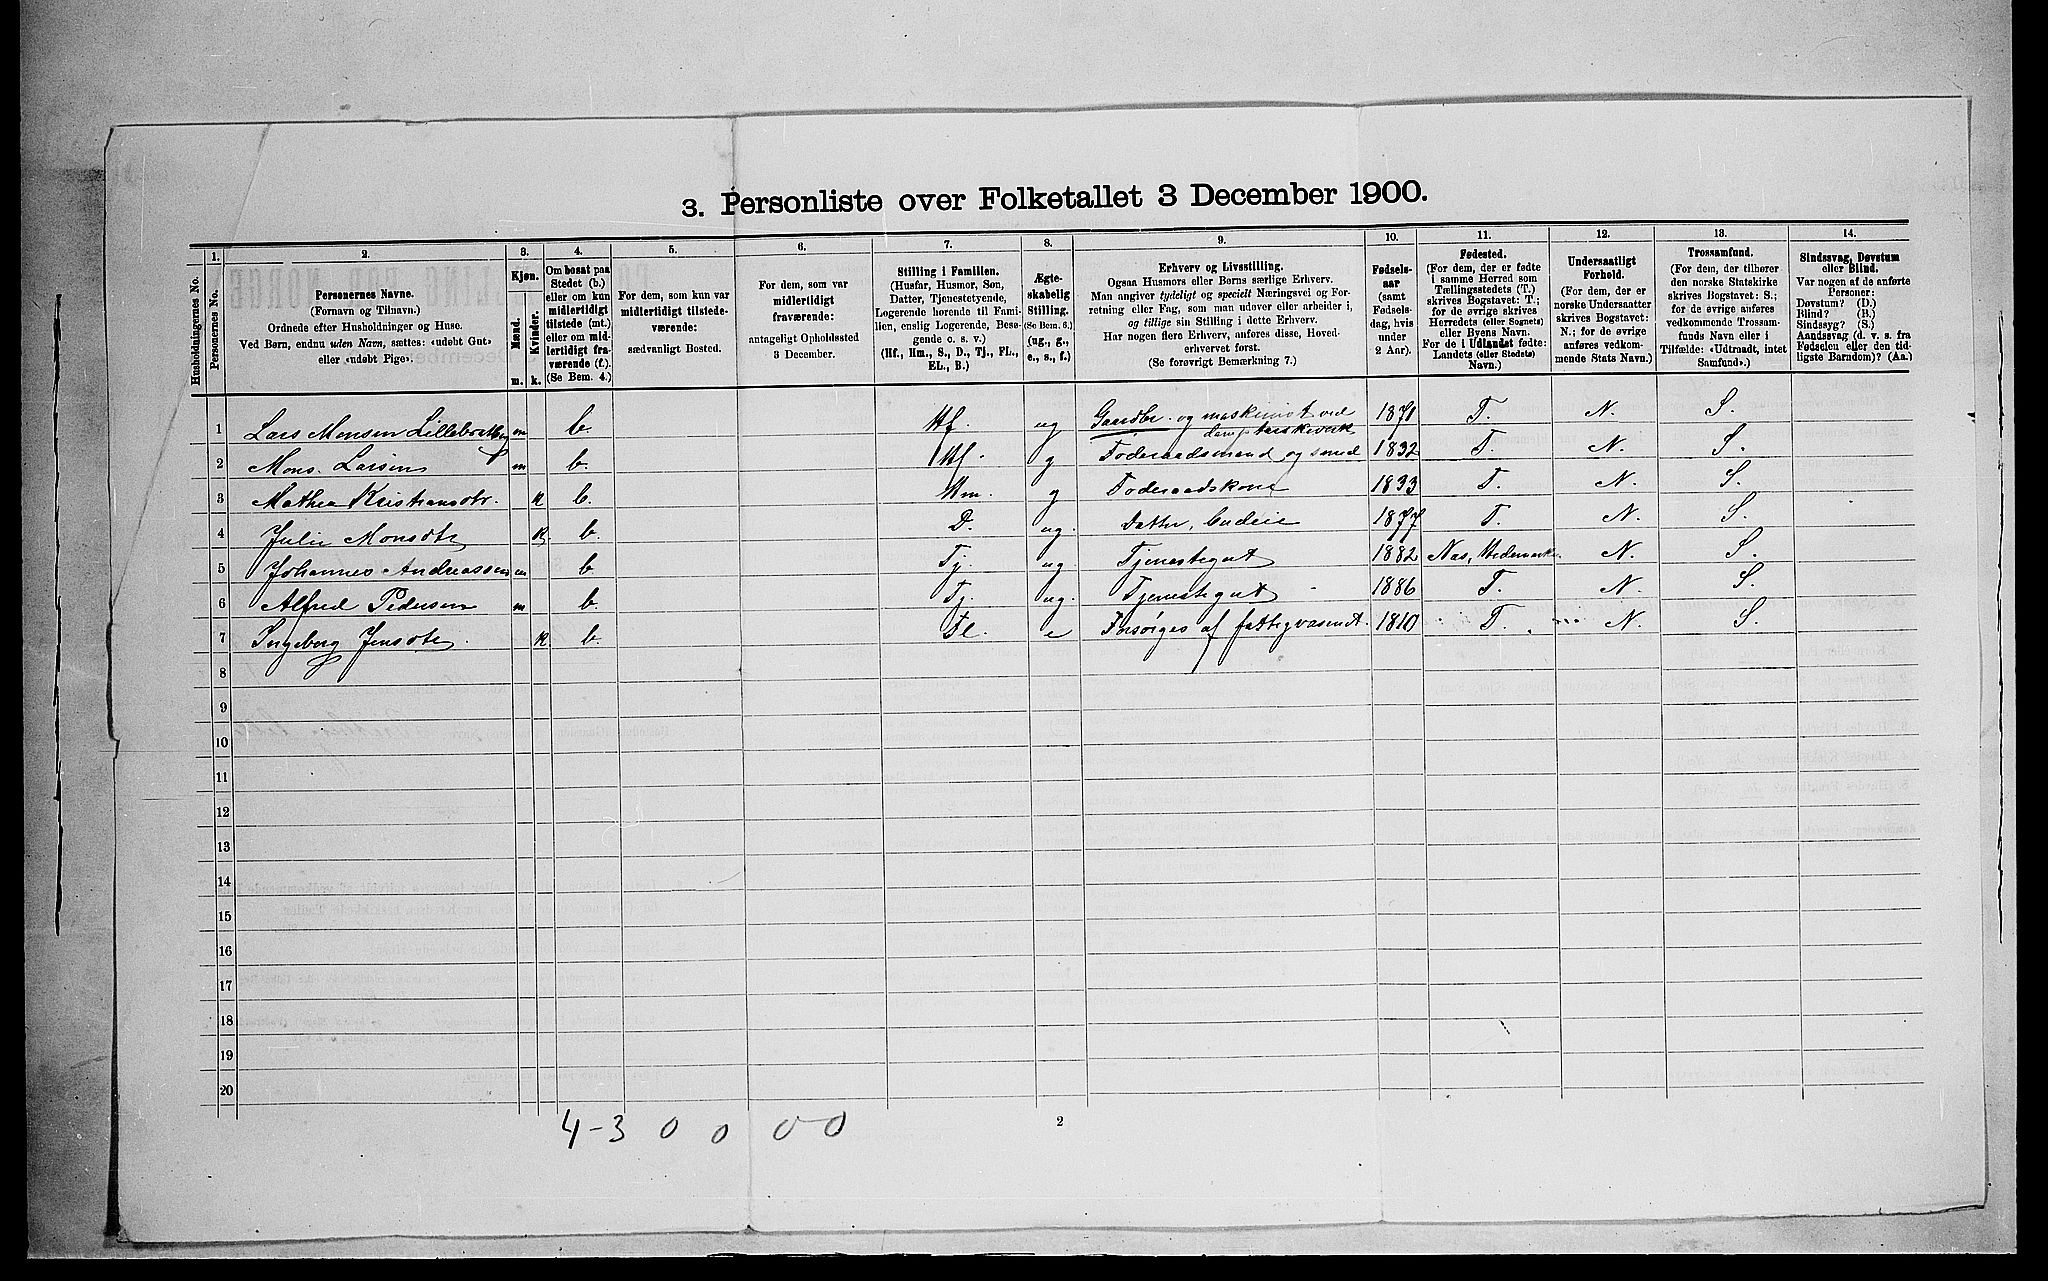 3. Personliste over Folketallet 3 December 1900.
1. 2. 3. 4. 5. 6. 7. 8. 9. 10. 11. 12. 13. 14.
Husholdningernes No.
Personernes No.
Personernes Navne.
(Fornavn og Tilnavn.)
Ordnede efter Husholdninger og Huse.
Ved Børn, endnu uden Navn, sættes: «udøbt Gut»
eller «udøbt Pige».
Kjøn.
Mænd.
Kvinder.
m. k.
Om bosat paa
Stedet (b.)
eller om kun
midlertidigt
tilstede (mt.)
eller om mid-
lertidigt fra-
værende (f.).
(Se Bem. 4.)
For dem, som kun var
midlertidigt tilstede-
værende:
sædvanligt Bosted.
For dem, som var
midlertidigt
fraværende:
antageligt Opholdssted
3 December.
Stilling i Familien.
(Husfar, Husmor, Søn,
Datter, Tjenestetyende,
Logerende hørende til Fami-
lien, enslig Logerende, Besø-
gende o. s. v.)
(Hf., Hm., S., D., Tj., FL.,
EL., B.)
Ægte-
skabelig
Stilling.
(Se Bem. 6.)
(ug., g.,
e., s., f.)
Erhverv og Livsstilling.
Ogsaa Husmors eller Børns særlige Erhverv.
Man angiver tydeligt og specielt Næringsvei og For-
retning eller Fag, som man udøver eller arbeider i,
og tillige sin Stilling i dette Erhverv.
Har nogen flere Erhverv, anføres disse, Hoved-
erhvervet først.
(Se forøvrigt Bemærkning 7.)
Fødsels-
aar
(samt
Fødsels-
dag, hvis
under
2 Aar).
Fødested.
(For dem, der er fødte
i samme Herred som
Tællingsstedets (T.)
skrives Bogstavet: T.;
for de øvrige skrives
Herredets (eller Sognets)
eller Byens Navn.
For de i Udlandet fødte:
Landets (eller Stedets)
Navn.)
Undersaatligt
Forhold.
(For dem, der er
norske Undersaatter
skrives Bogstavet:
N.; for de øvrige
anføres vedkom-
mende Stats Navn.)
Trossamfund.
(For dem, der tilhører
den norske Statskirke
skrives Bogstavet: S.;
for de øvrige anføres
vedkommende Trossam-
funds Navn eller i
Tilfælde: «Udtraadt, intet
Samfund».)
Sindssvag, Døvstum
eller Blind.
Var nogen af de anførte
Personer:
Døvstum? (D.)
Blind? (B.)
Sindssyg? (S.)
Aandssvag (d. v. s. fra
Fødselen eller den tid-
ligste Barndom)? (Aa.)
1 Lars Monsen Lillebratberg m b. Hf. ug Gaardbr. og maskinist ved damptærskeverk 1871 T. N. S.
2 Mons Larsen m b. Hf. g Føderaadsmand og smed 1832 T. N. S.
3 Mathea Kristiansdtr. k b. Hm. g Føderaadskone 1833 T. N. S.
4 Julie Monsdtr k. b. D. ug. Datter, budeie 1877 T. N. S.
5 Johannes Andreassen m b Tj. ug Tjenestegut 1882 Nas, Hedemarken. N. S.
6 Alfred Pedersen m b. Tj. ug. Tjenestegut 1886 T. N. S.
7 Ingeborg Jensdtr. k b. Fl. e Forsørges af fattigvæsendt. 1810 T. N. S.
8
9
10
11
12
13
14
15
16
17
18
19
20
4-3 0 0 0 0
2